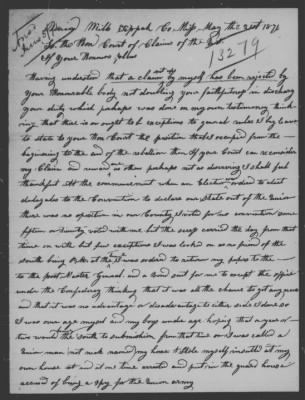 Mill Tippah Co Miss May the 21st 1871
To the Hon Court of Claims of the
13279
If your Honours please
Having understood that a claim set by myself has been rejected by
your Honourable body not doubting your faithfulness in discharg
your duty which perhaps was done on my own testimony think-
ing that there is or ought to be exceptions to general rules I beg leave
to state to your Hon Court the position that I occupied from the
beginning to the end of the rebellion then If your Court can reconsider
my Claim and reward me then perhaps not as deserving I shall feel
thankful At the commencement when an Election orded to elect
delagates to the Convention to declare our State out of the Union
there was no oposition in our County I voted for no convention some
fifteen or twenty voted with me but the croud carried the day from that
time on with but few exceptions I was looked on as no friend of the
south being P.M at the time I was ordered to return my papers to the
to the post Master General and a bond sent for me to except the office
under the Confederacy thinking that it was all the chance to get any news
and that it was no advantage or disadvantage to either side I done so
I was over age myself and my boys under age hoping that a year or
two would the south to submission from that time on I was called a
Union man (not nick named) my horse stole myself insulted at my
own house and at one time arrested and put in the guard house
accused of being a spy for the Union army